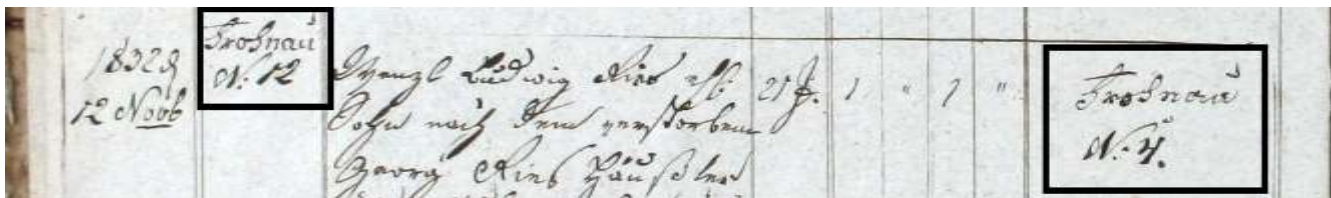 1832 d
12 Novb
Frohnau
N. 12
Wenzl Ludwig Ries ehl.
Sohn nach dem verstorbenen
Georg Ries Häußler
21 J. 1 " 1 "
Frohnau
N. 4.